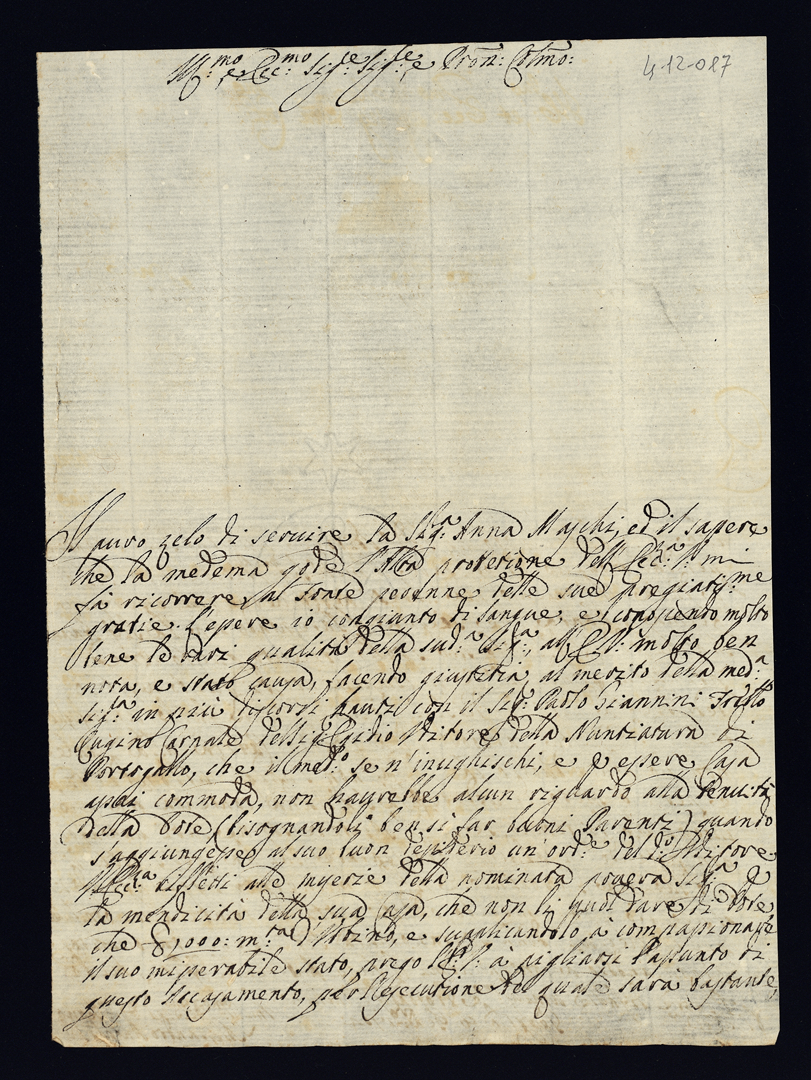 Ill:mo et Ecc:mo Sig:re Sig:re e Pron: Colmo:
412-087
Il puro zelo di seruire la Sig:a Anna Maschi, ed il sapere
che la medema gode l'Alta protetione dell'Ecc:a V: mi
fà ricorrere al fonte perenne delle sue pregiatis:me
gratie. L'essere io congiunto di sangue, e conoscendo molto
bene le rari qualità della sud:a Sig:a, all'Ecc: V: molto ben
nota, e stato causa, facendo giustitia al merito della med:a
Sig:a in più discorsi hauti con il Sig: Paolo Giannini Frãllo
Cugino Carnale del Sig: Egidio Auditore della Nuntiatura di
Portogallo, che il med:o se n'inuighischi, e p essere Casa
assai commoda, non haurebbe alcun riguardo alla tenuità
della Dote (bisognandoli ben si far buoni Parenti) quando
s'aggiungesse al suo buon desiderio un'ord:e del d:o Auditore.
V: Ecc:a rifletti alle miserie della nominata pouera Sig:a p
la mendicità della sua Casa, che non li puol dare di Dote
che 1000: m:ta d'Urbino, e supplicandolo à compassionare
il suo miserabile stato, prego V: E: à pigliarsi l'assunto di
questo Accasamento, per l'esecutione del quale sarà bastante,